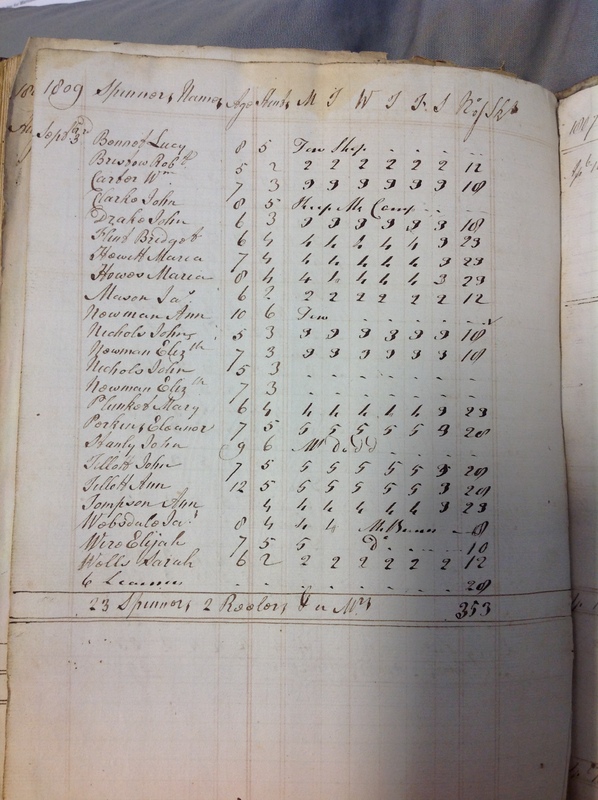 1809 Spinners Names Age Stint M T W T F S No of Sks
Septbr 3rd Bennet Lucy 8 5 Tow Shop - - - -
Bristow Robt 5 2 2 2 2 2 2 2 12
Carter Wm 7 3 3 3 3 3 3 3 18
Clarke John 8 5 Keep Mr Camp - - -
Drake John 6 3 3 3 3 3 3 3 18
Flint Bridget 6 4 4 4 4 4 4 3 23
Hewett Maria 7 4 4 4 4 4 4 3 23
Howes Maria 8 4 4 4 4 4 4 3 23
Mason Jas 6 2 2 2 2 2 2 2 12
Newman Ann 10 6 Tow - - - -
Nichols John 5 3 3 3 3 3 3 3 18
Newman Elizth 7 3 3 3 3 3 3 3 18
Nichols John 5 3 - - - - - - -
Newman Elizth 7 3 - - - - - - -
Plunket Mary 6 4 4 4 4 4 4 3 23
Perkins Eleanor 7 5 5 5 5 5 5 3 28
Hanly John 9 6 Mr - - - -
Tillott John 7 5 5 5 5 5 5 3 28
Tillott Ann 12 5 5 5 5 5 5 3 28
Tompson Ann 4 4 4 4 4 4 3 23
Websdale Jas 8 4 4 4 Mr Bunn - 8
Wire Elijah 7 5 5 5 Do - - - 10
Wells Sarah 6 2 2 2 2 2 2 2 12
6 Learners - - - - - - 28
23 Spinners 2 Reelers & a Mrs 353